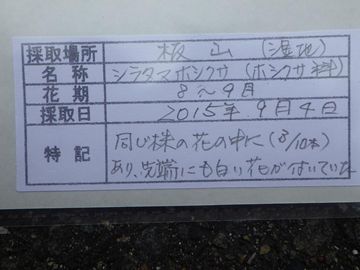 採取場所 板山 (湿地)
名称 シラタマホシクサ (ホシクサ科)
花期 8～9月
採取日 2015年 9月4日
特記 同じ株の花の中に (8/10本)
あり、先端にも白い花が付いていた